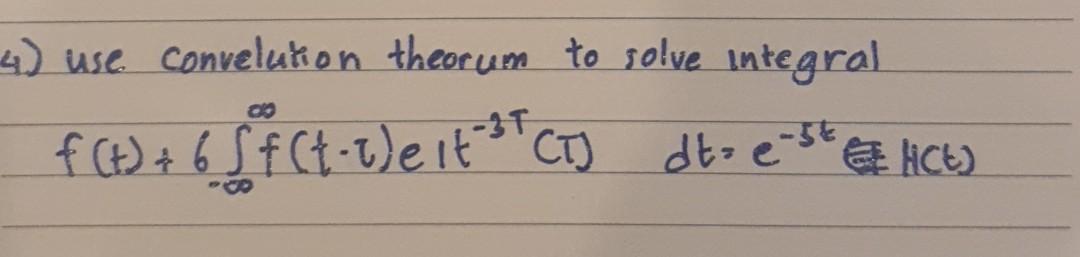 4) use convelution theorum to solve integral
f(t) + 6 ∫_{-∞}^{∞} f(t-τ)e 1t^{-3T} (T) dt = e^{-5t} H(t)